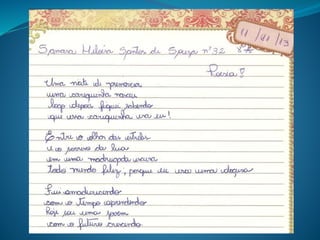 11/11/13
Samara Heloisa Santos de Souza nº 32 8ªA
Poesia
Uma noite de primavera
uma carequinha nasceu
logo depois fiquei sabendo
que essa carequinha era eu!
Entre o olhar das estrelas
e o sorriso da lua
em uma madrugada
todo mundo feliz, porque eu era uma
Fui amadurecendo
com o tempo aprendendo
Hoje sou uma jovem
com o futuro crescendo